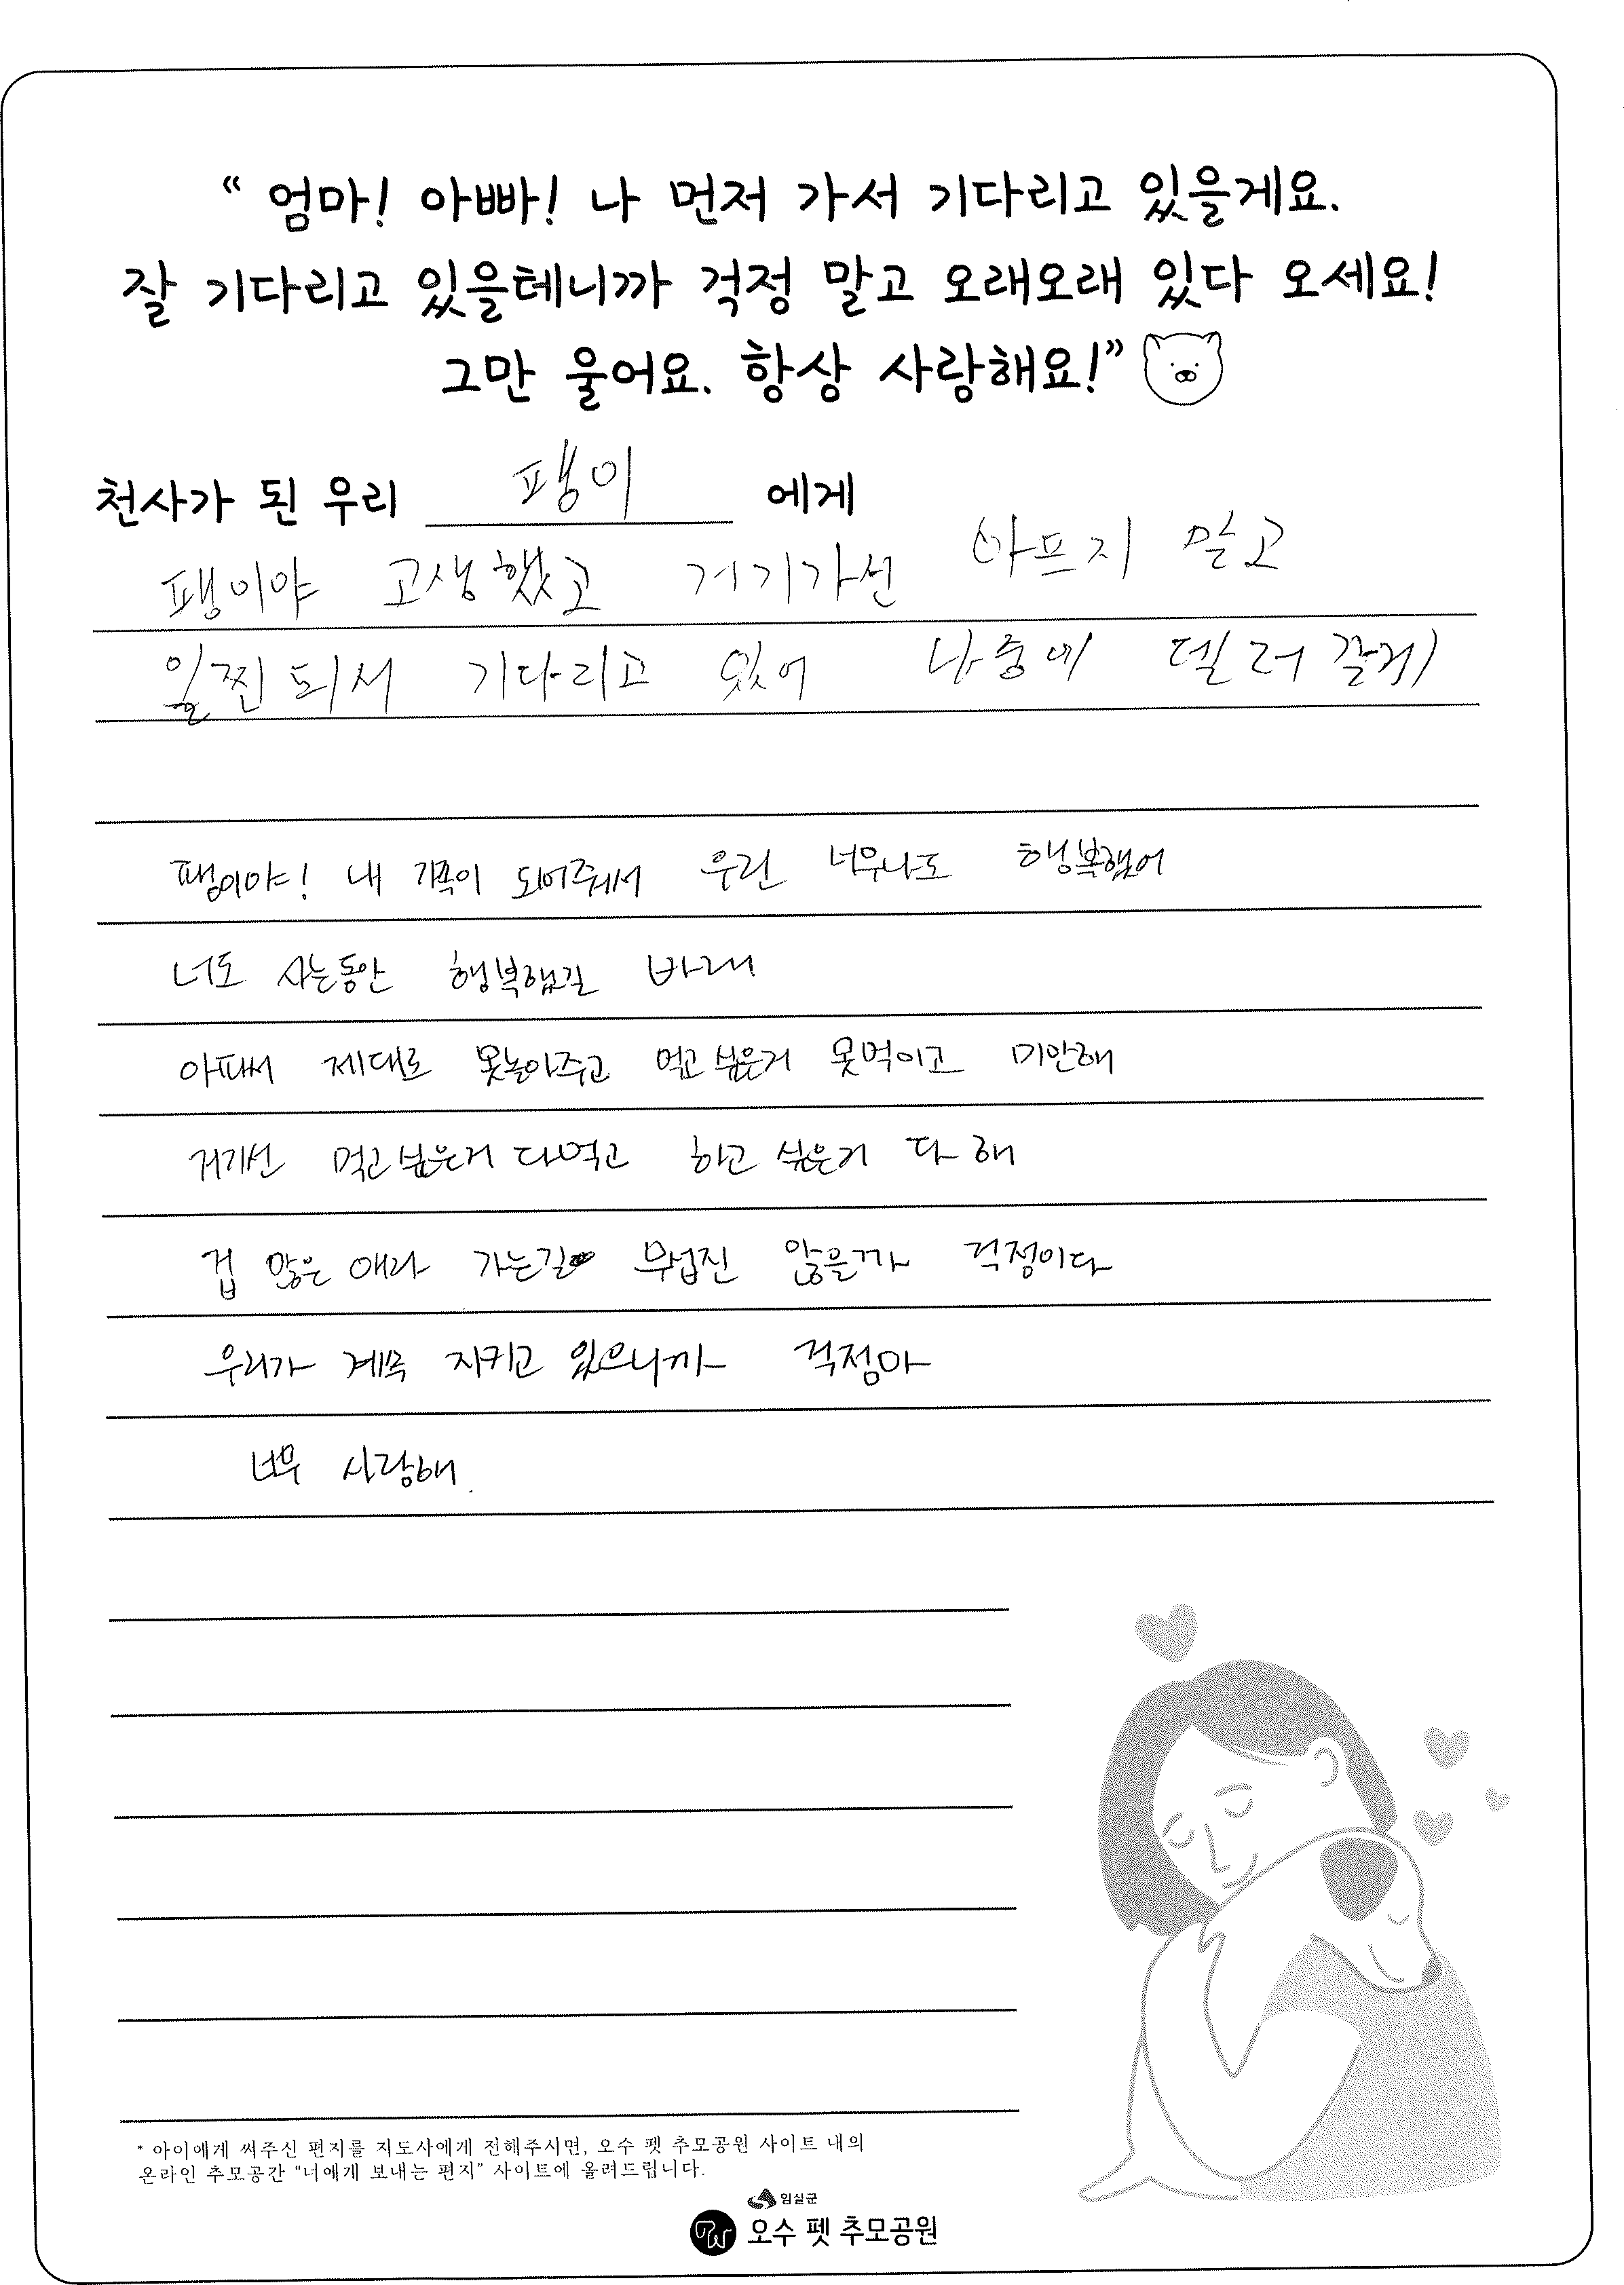 “ 엄마! 아빠! 나 먼저 가서 기다리고 있을게요.
잘 기다리고 있을테니까 걱정 말고 오래오래 있다 오세요!
그만 울어요. 항상 사랑해요!”
천사가 된 우리 팽이 에게
팽이야 고생했고 거기가선 아프지 말고
일찐되서 기다리고 있어 나중에 델러갈게
팽이야! 내 가족이 되어줘서 우린 너무나도 행복했어
너도 사는동안 행복했길 바래
아파서 제대로 못놀아주고 먹고싶은거 못먹이고 미안해
거기선 먹고싶은거 다먹고 하고싶은거 다해
겁 많은 애라 가는길 무섭진 않을까 걱정이다
우리가 계속 지키고 있으니까 걱정마
너무 사랑해.
* 아이에게 써주신 편지를 지도사에게 전해주시면, 오수 펫 추모공원 사이트 내의
온라인 추모공간 “너에게 보내는 편지” 사이트에 올려드립니다.
임실군
오수 펫 추모공원